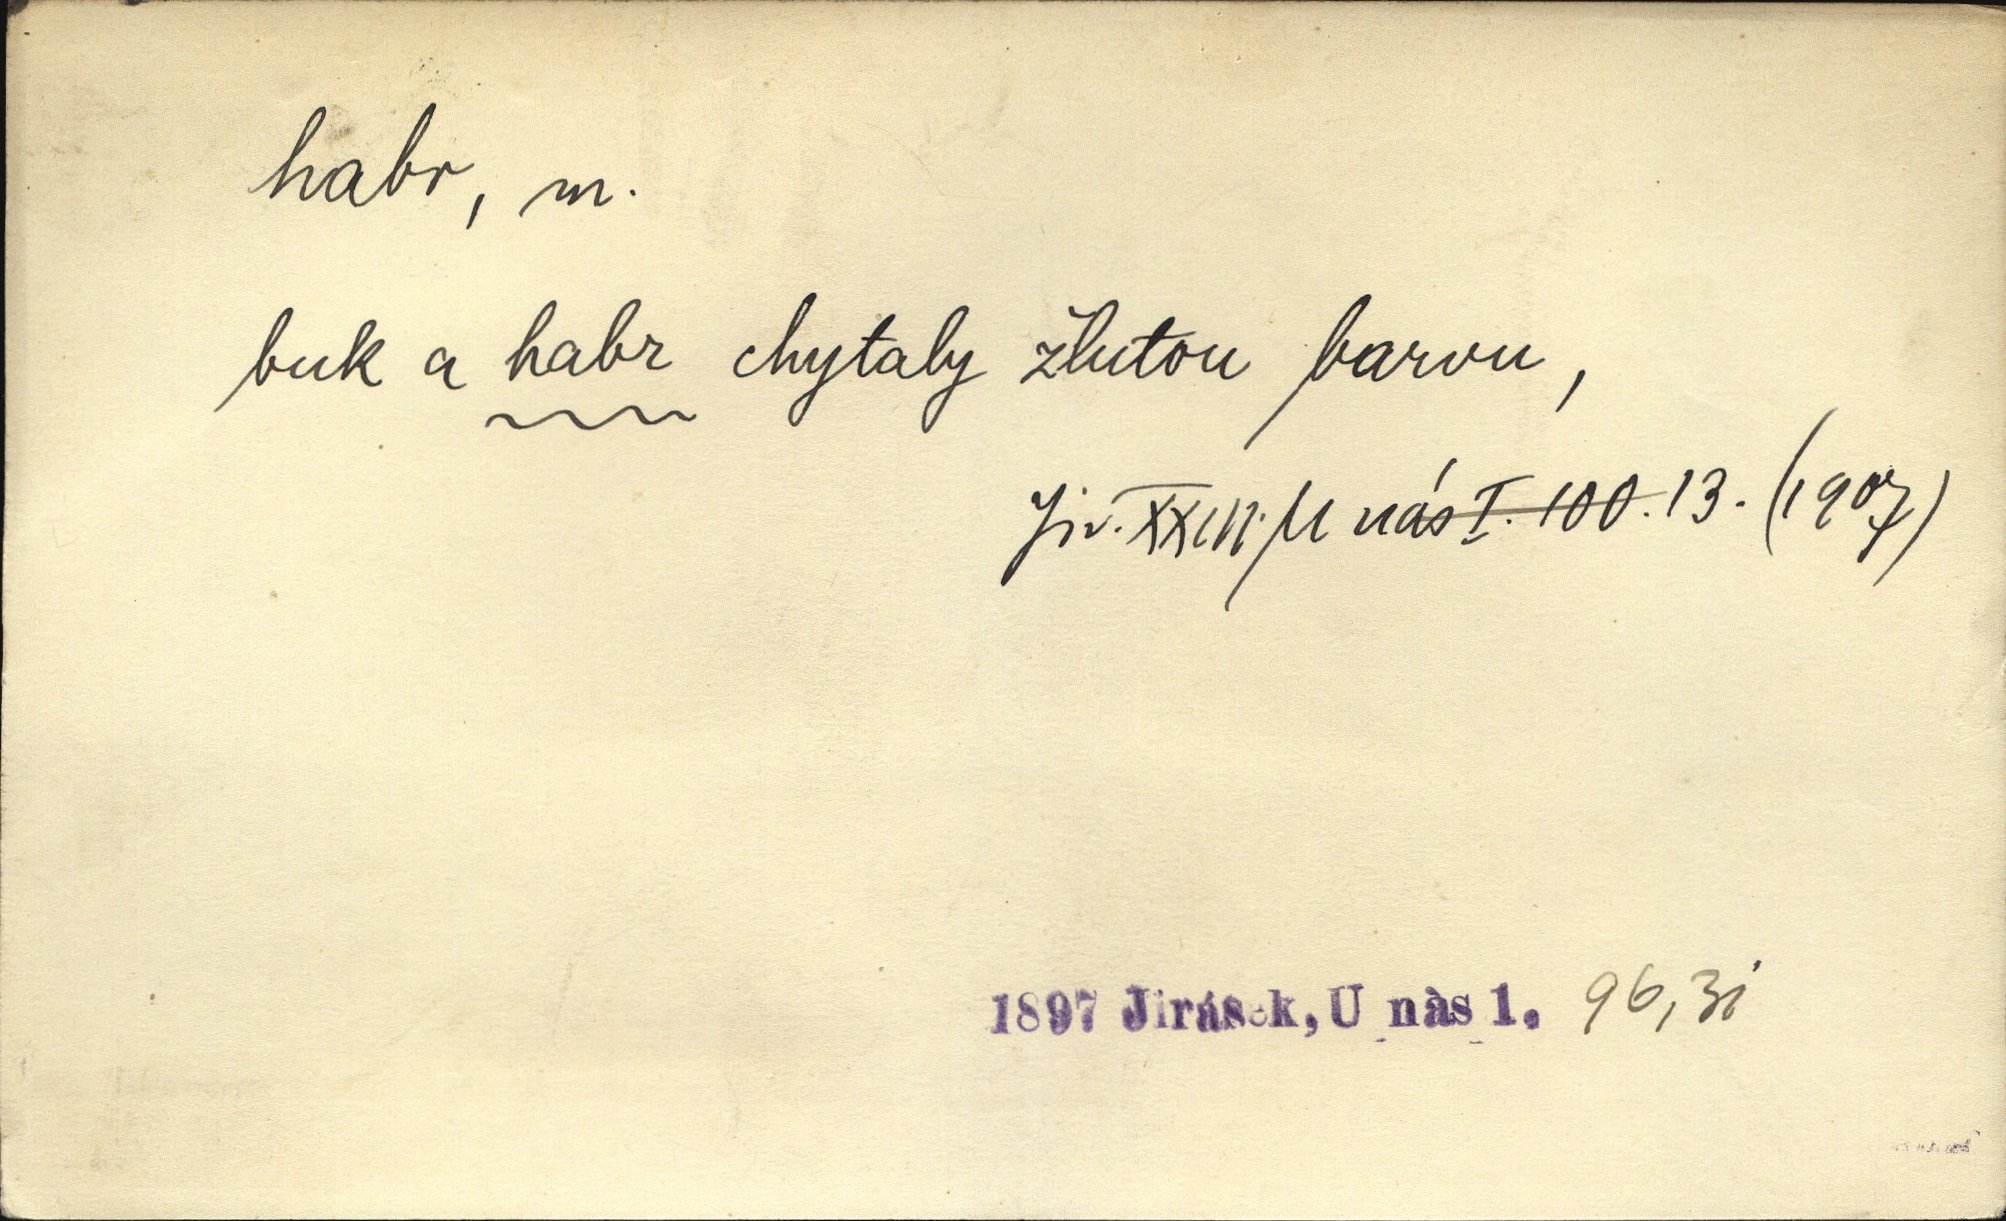 habr, m.
buk a habr chytaly žlutou barvu,
Jir. XXIII. U nás I. 100. 13. (1907)
1897 Jirásek, U nàs 1. 96,3i